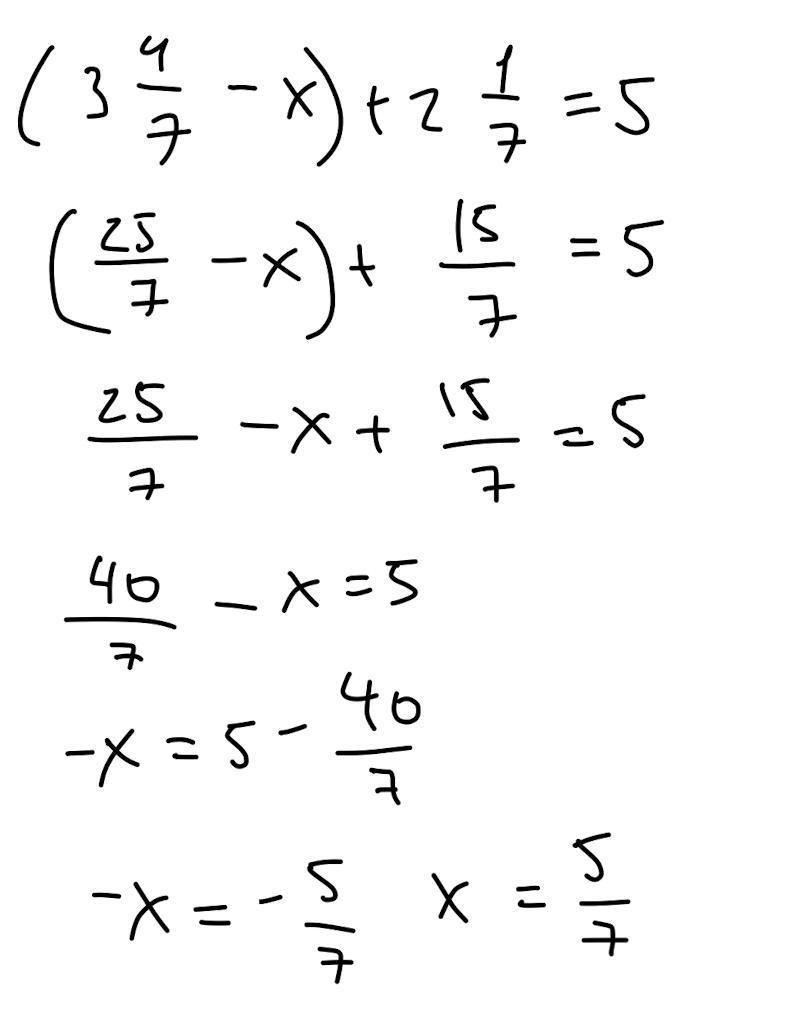 (3 4/7 - x) + 2 1/7 = 5
(25/7 - x) + 15/7 = 5
25/7 - x + 15/7 = 5
40/7 - x = 5
-x = 5 - 40/7
-x = -5/7 x = 5/7